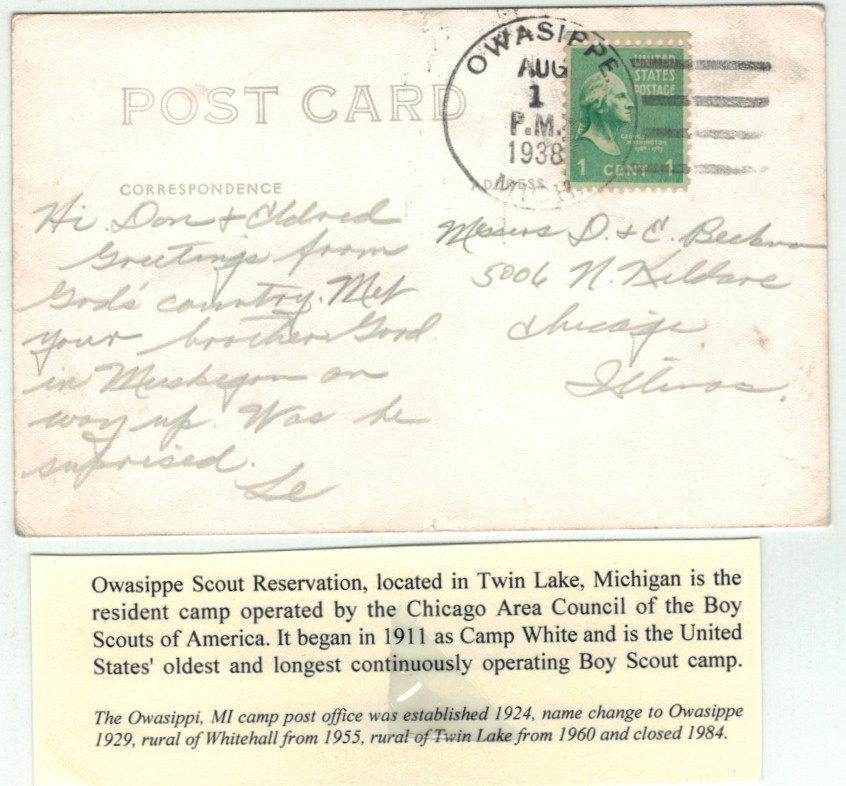 POST CARD
OWASIPPE
AUG
1
P.M.
1938
MICH
UNITED
STATES
POSTAGE
GEORGE
WASHINGTON
1 CENT 1
CORRESPONDENCE
ADDRESS
Hi Don & Eldred
Greetings from
God's country. Met
your brother Gord
in Muskegon on
way up. Was he
suprised.
Le
Messers D. & E.
5006 N. Kildare
Chicago
Illinos.
Owasippe Scout Reservation, located in Twin Lake, Michigan is the
resident camp operated by the Chicago Area Council of the Boy
Scouts of America. It began in 1911 as Camp White and is the United
States' oldest and longest continuously operating Boy Scout camp.
The Owasippi, MI camp post office was established 1924, name change to Owasippe
1929, rural of Whitehall from 1955, rural of Twin Lake from 1960 and closed 1984.